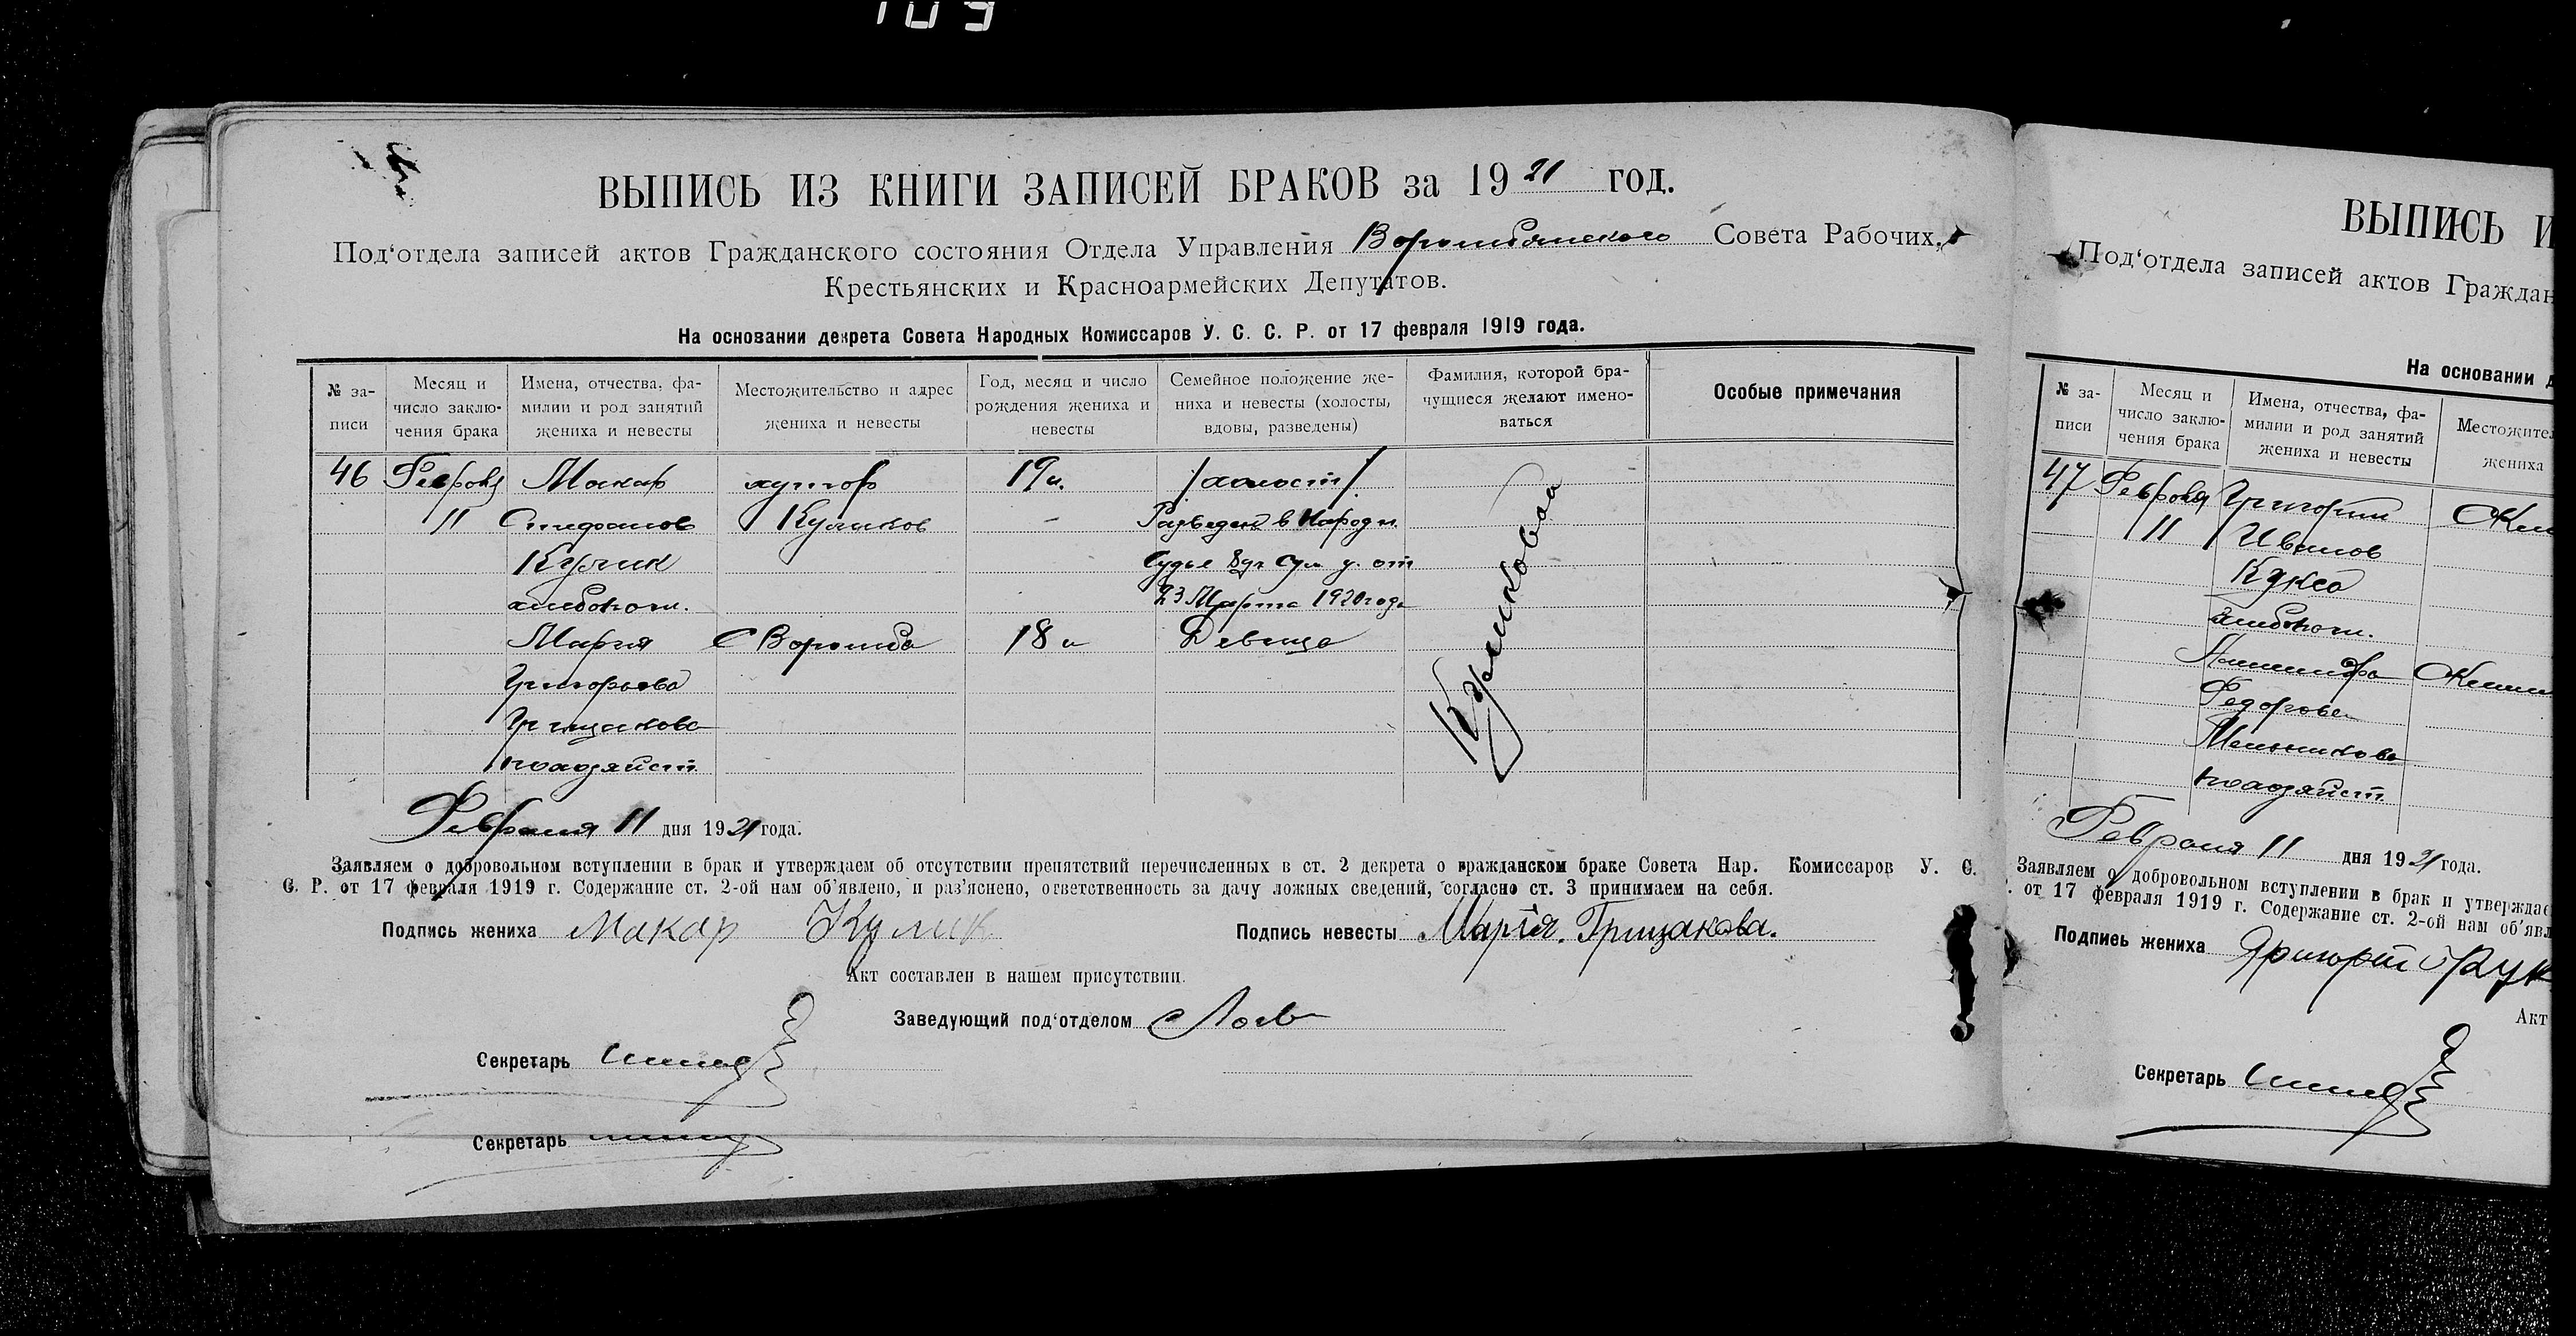 109
ВЫПИСЬ ИЗ КНИГИ ЗАПИСЕЙ БРАКОВ за 1921 год.
Под'отдела записей актов Гражданского состояния Отдела Управления Ворожбянского Совета Рабочих,
Крестьянских и Красноармейских Депутатов.
На основании декрета Совета Народных Комиссаров У. С. С. Р. от 17 февраля 1919 года.
№ за-
писи
Месяц и
число заклю-
чения брака
Имена, отчества, фа-
милии и род занятий
жениха и невесты
Местожительство и адрес
жениха и невесты
Год, месяц и число
рождения жениха и
невесты
Семейное положение же-
ниха и невесты (холосты,
вдовы, разведены)
Фамилия, которой бра-
чущиеся желают имено-
ваться
Особые примечания
46 Макар хутор 19 л. /холост/
11 Стефанов Куликов Разведен в Народн.
Кулик Судье Сум у. от
хлебопаш. 23 Марта 1920 года
Мария С Ворожба 18 л Девица
Григорьева
Грицакова
домохозяйст.
Куликовая
Февраля 11 дня 1921 года.
Заявляем о добровольном вступлении в брак и утверждаем об отсутствии препятствий перечисленных в ст. 2 декрета о гражданском браке Совета Нар. Комиссаров У. С.
С. Р. от 17 февраля 1919 г. Содержание ст. 2-ой нам об'явлено, и раз'яснено, ответственность за дачу ложных сведений, согласно ст. 3 принимаем на себя.
Подпись жениха Макар Кулик Подпись невесты Марія Грицакова.
Акт составлен в нашем присутствии.
Заведующий под'отделом
Секретарь
Секретарь
ВЫПИСЬ И
Под'отдела записей актов Граждан
На основании д
№ за-
писи
Месяц и
число заклю-
чения брака
Имена, отчества, фа-
милии и род занятий
жениха и невесты
Местожител
жениха
47 Февраля Григорий
11 Иванов
Кукса
хлебопаш.
Федорова
Мельникова
домохозяйст.
Февраля 11 дня 1921 года.
Заявляем о добровольном вступлении в брак и утверждае
. от 17 февраля 1919 г. Содержание ст. 2-ой нам об'явл
Подпись жениха Григорий Кук
Акт
Секретарь